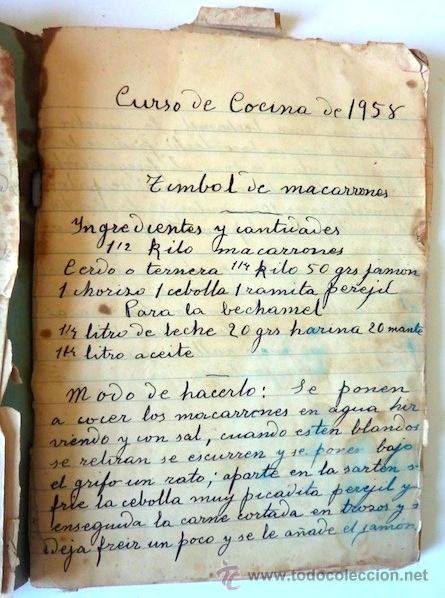 Curso de Cocina de 1958
Timbol de macarrones
Ingredientes y cantidades
1/2 kilo macarrones
Cerdo o ternera 1/4 kilo 50 grs jamon
1 choriso 1 cebolla 1 ramita perejil
Para la bechamel
1/2 litro de leche 20 grs harina 20 mante
litro aceite
Modo de hacerlo: Se ponen
a cocer los macarrones en agua hir
viendo y con sal, cuando esten blandos
se retiran se escurren y se ponen bajo
el grifo un rato; aparte en la sarten s
frie la cebolla muy picadita perejil y
enseguida la carne cortada en trozos y s
deja freir un poco y se le añade el jamon
© www.todocoleccion.net